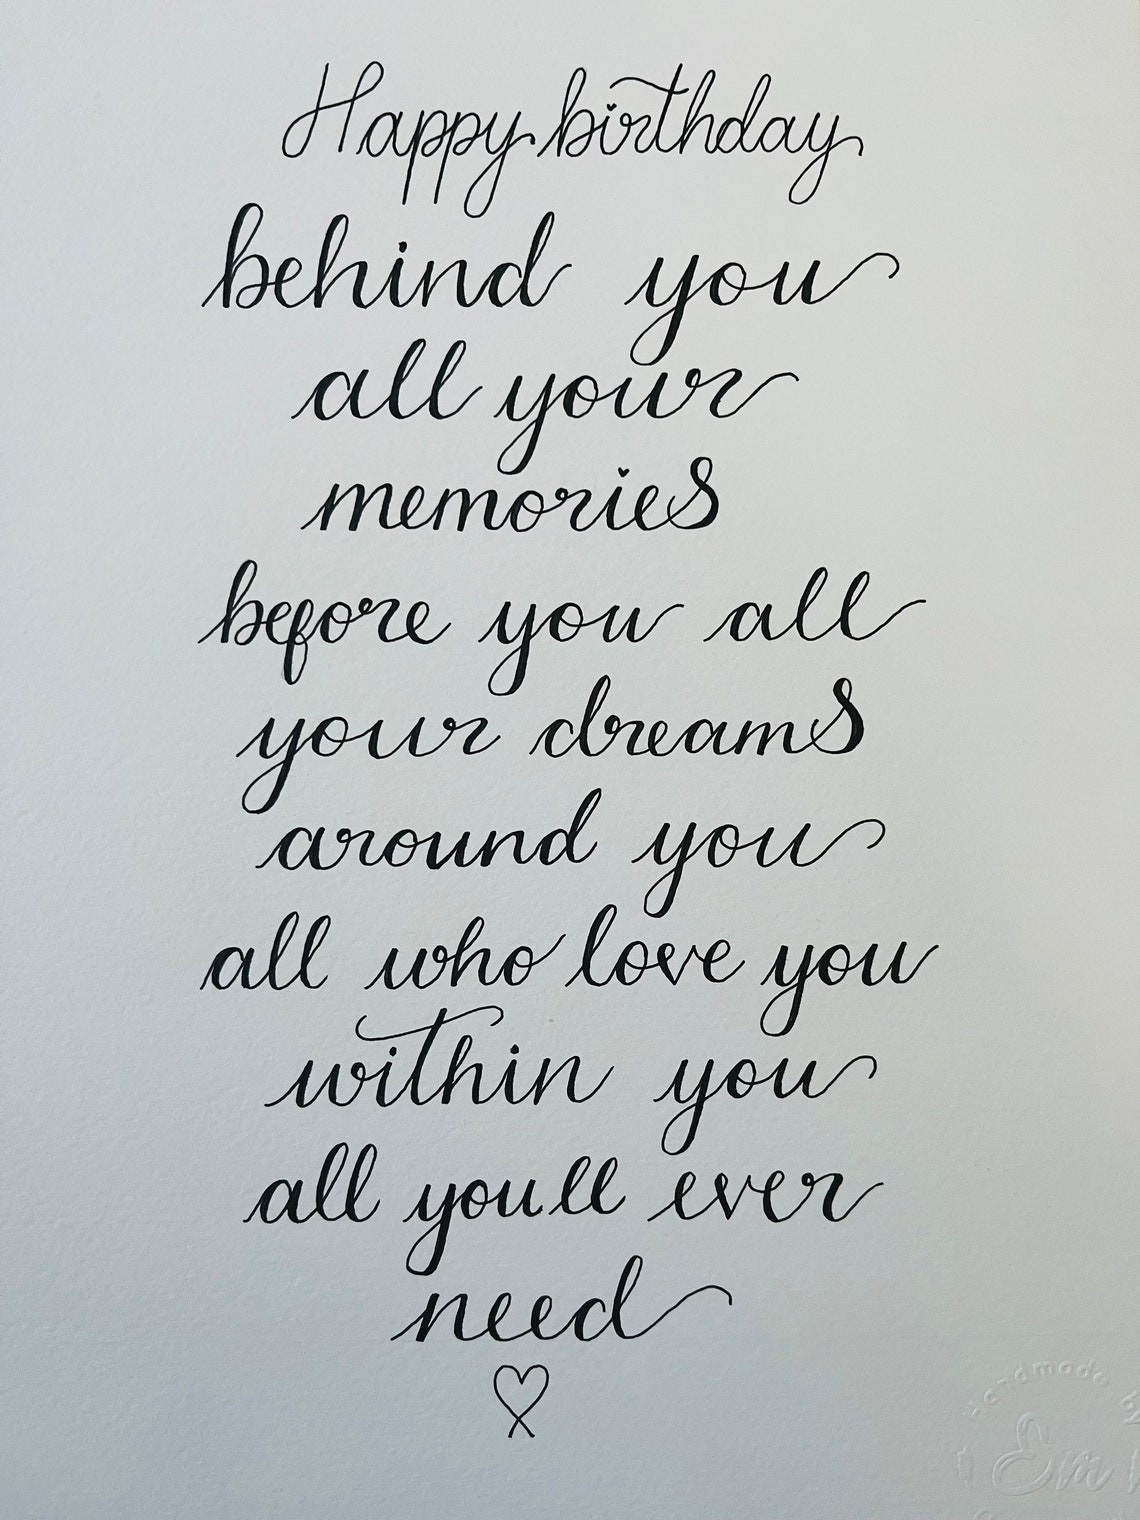 Happy birthday
behind you
all your
memories
before you all
your dreams
around you
all who love you
within you
all youll ever
need
Handmade by
Em